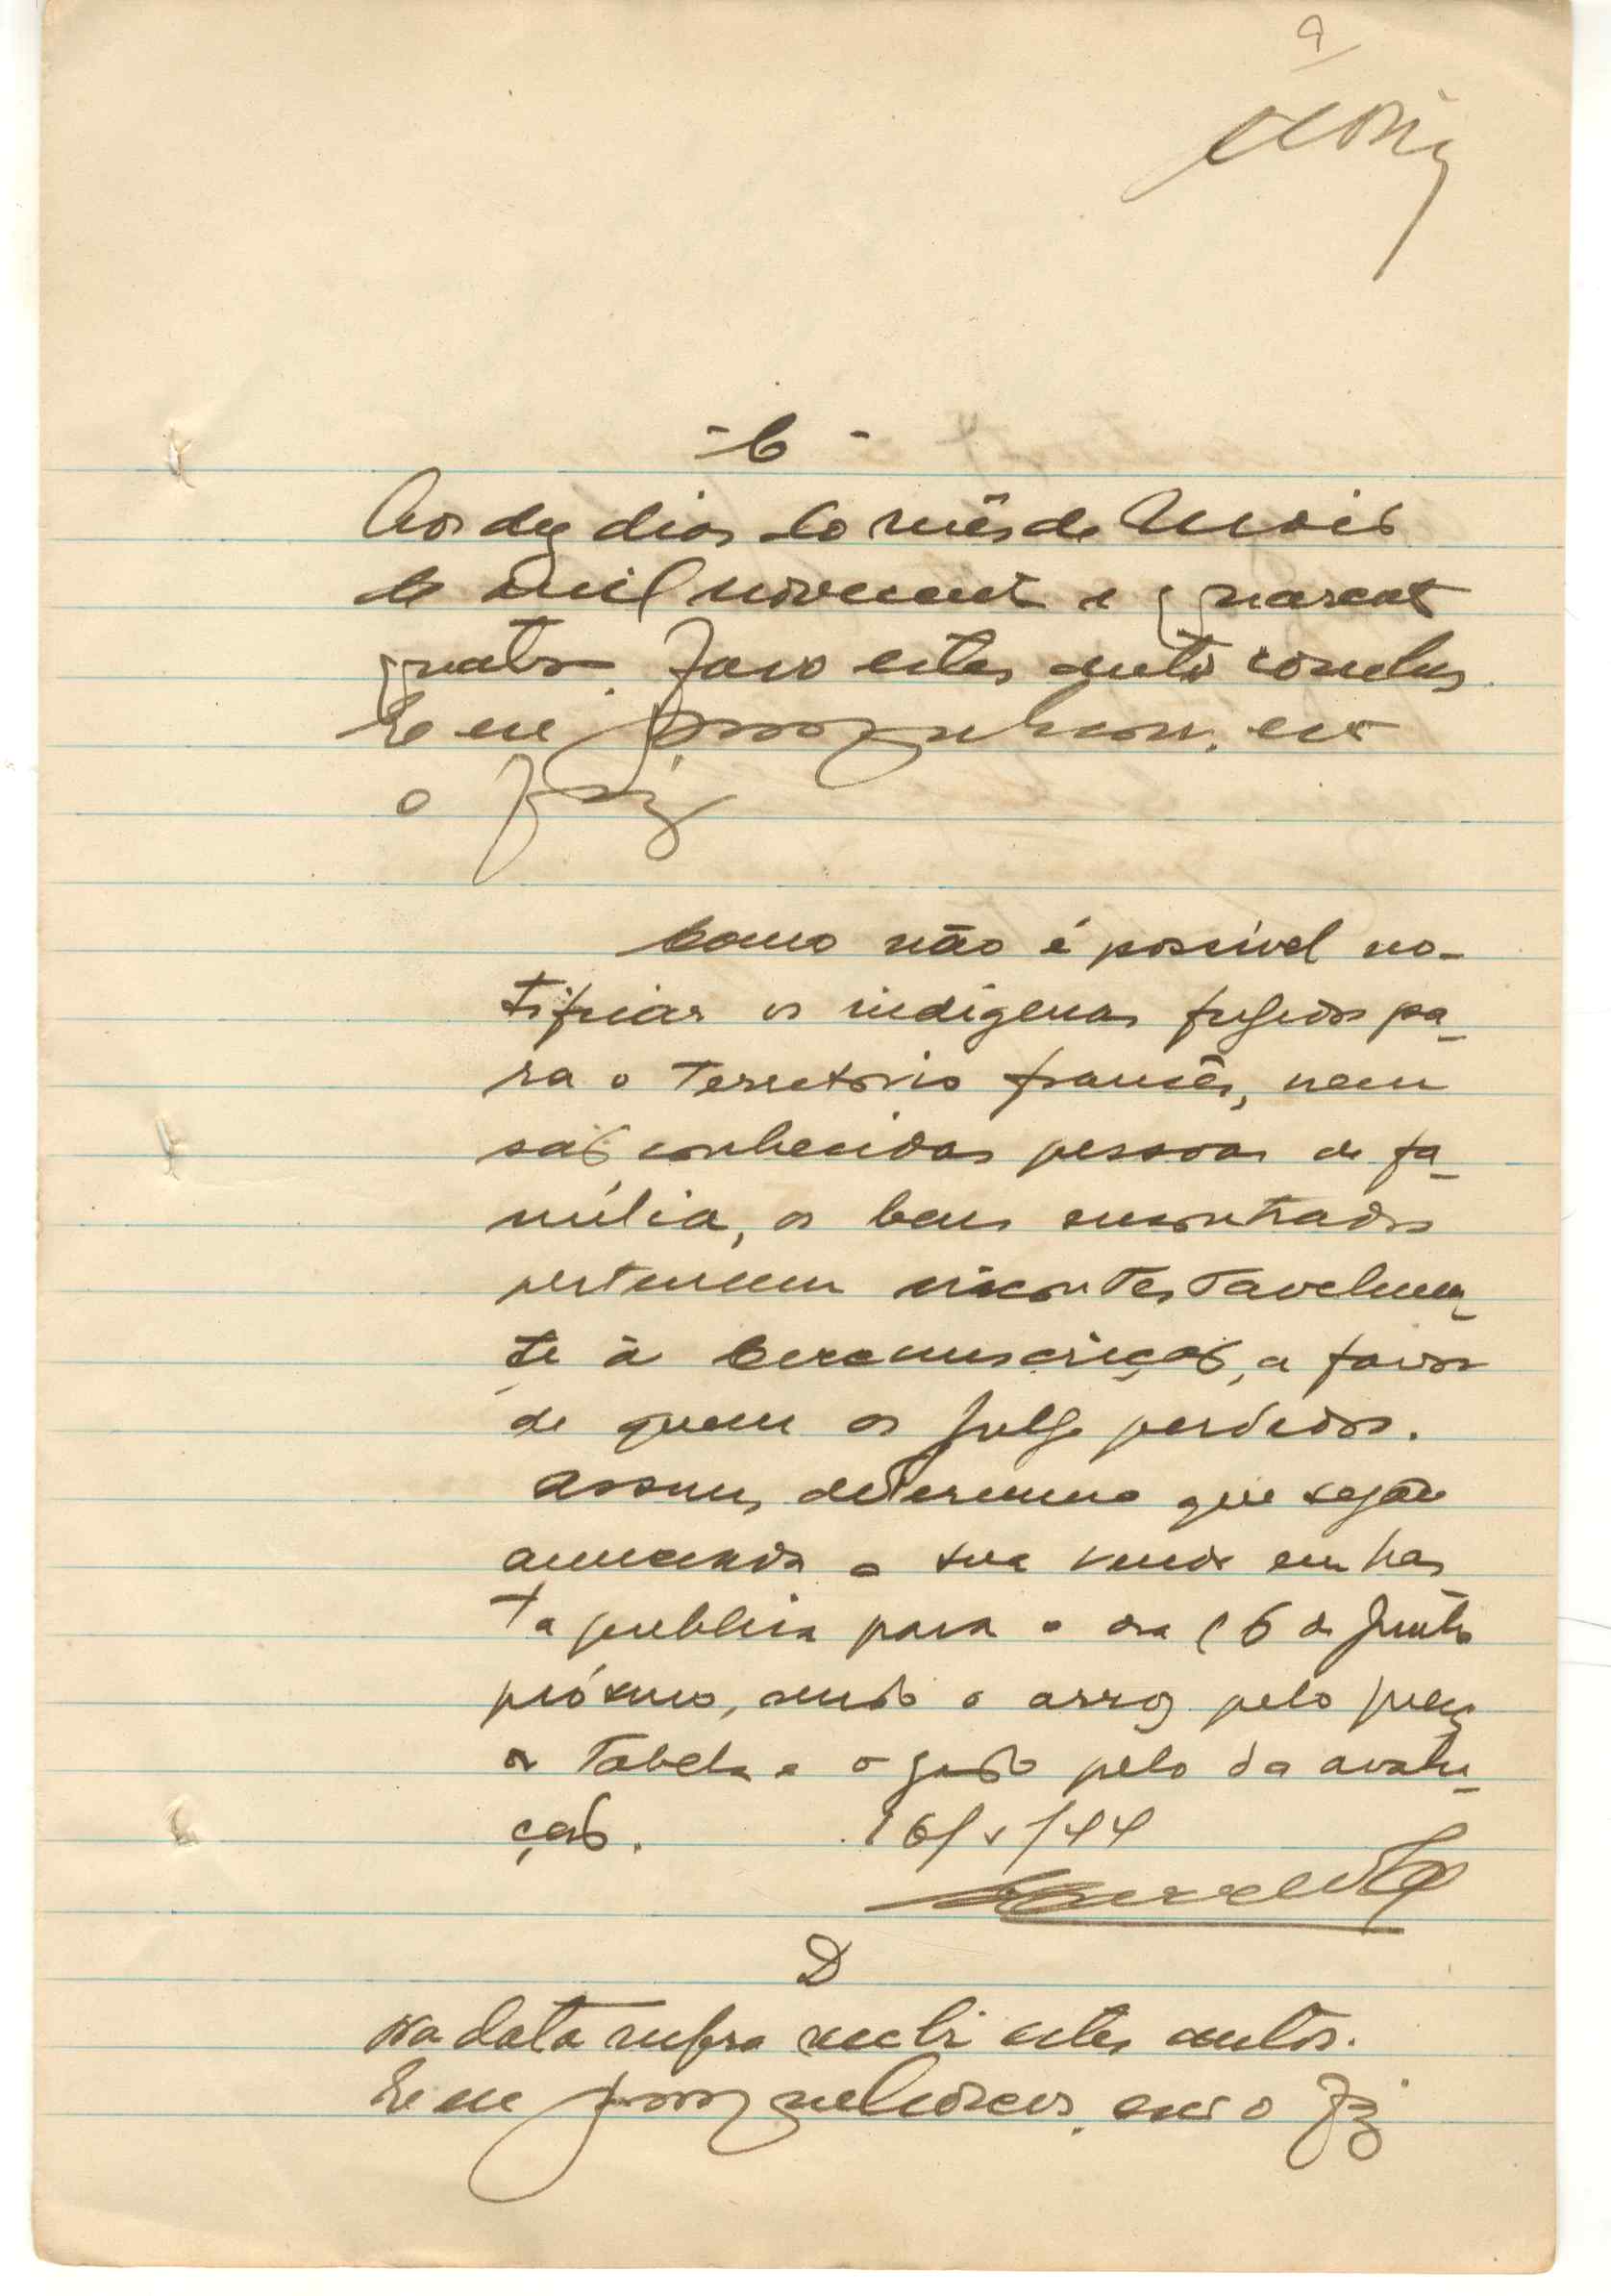 9
- C -
Aos dez dias do mês de Maio
de mil novecent e quarent
quatro. Faço estes autos conclus
E eu
o fiz
Como não é possivel no-
tificar os indígenas fugidos pa-
ra o Territorio francês, nem
são conhecidas pessoas de fa-
mília, os bens encontrados
pertencem incontestavelmen-
te à Circunscrição, a favor
de quem os julgo perdidos.
Assim, determino que seja
anunciada a sua venda em has
ta publica para o dia 16 de Junho
próximo, sendo o arroz pelo preço
da Tabela e o gado pelo da avalia-
ção. 16/V/44
D
Na data supra recebi estes autos.
E eu o fiz